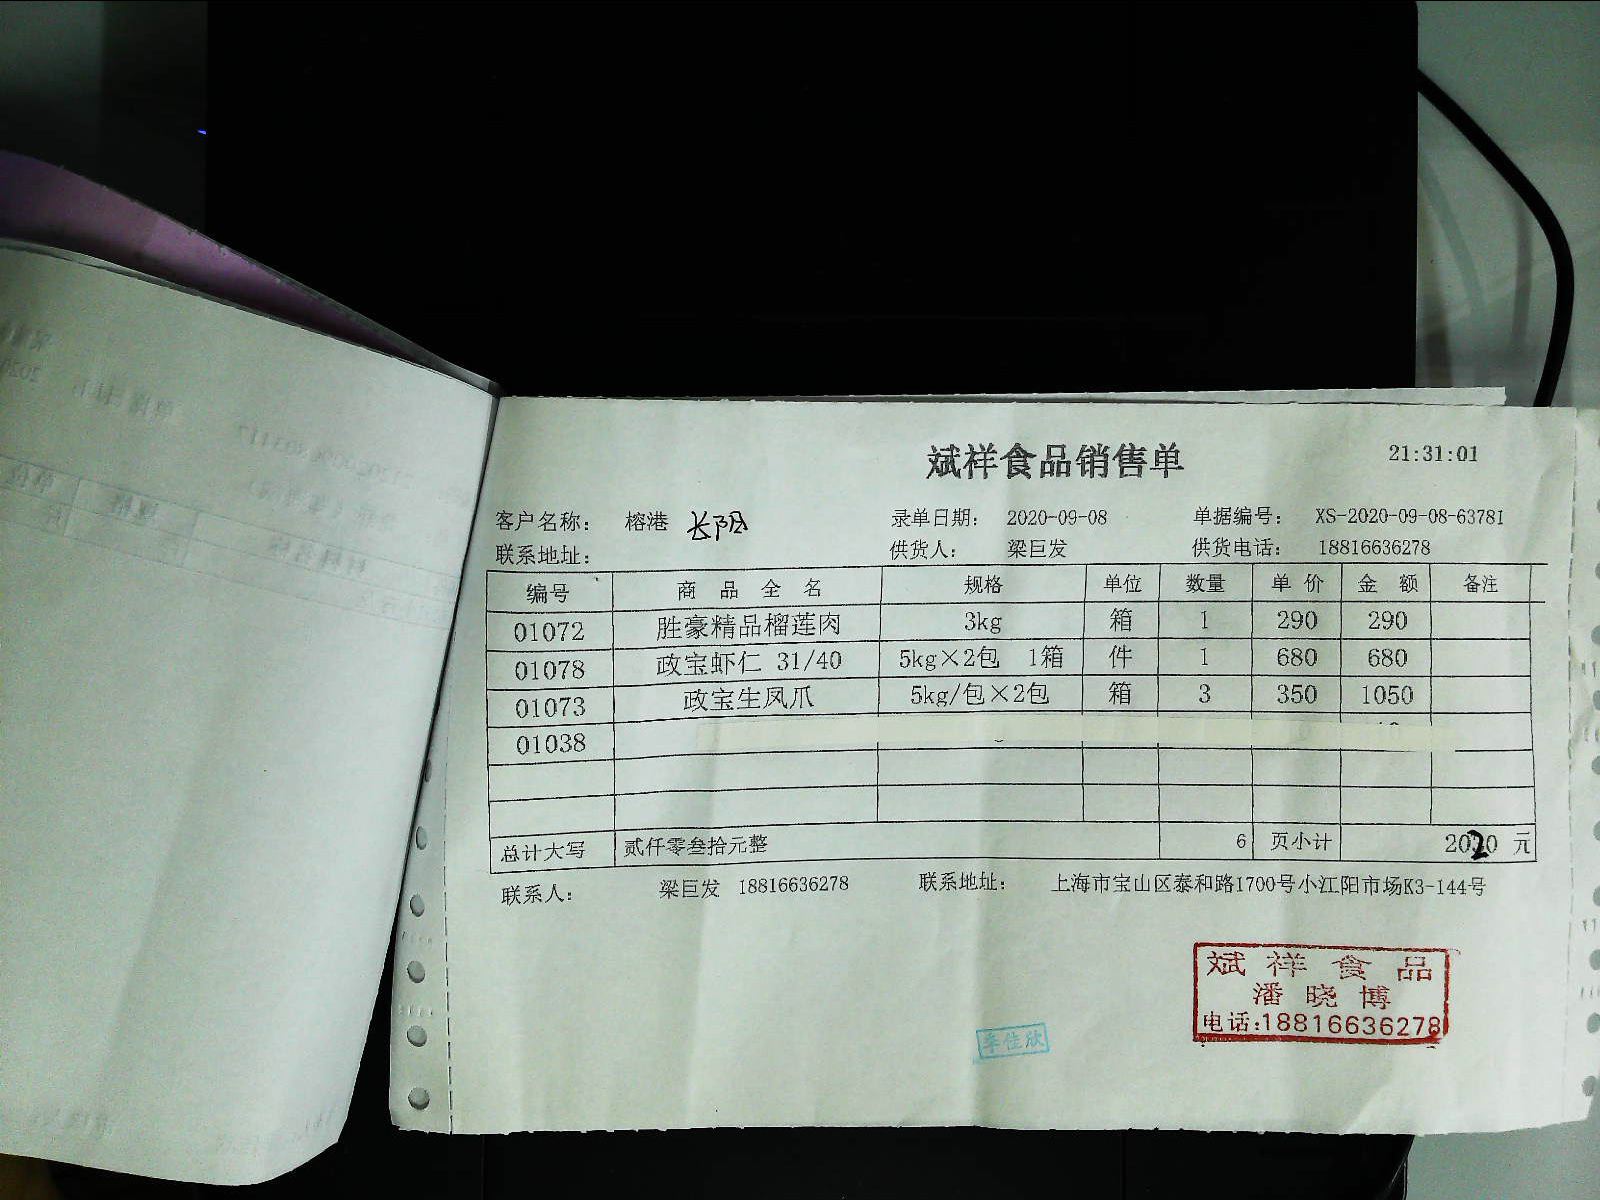 斌祥食品销售单 21:31:01
客户名称： 榕港 长阳 录单日期： 2020-09-08 单据编号： XS-2020-09-08-63781
联系地址： 供货人： 梁巨发 供货电话： 18816636278
编号 商品全名 规格 单位 数量 单价 金额 备注
01072 胜豪精品榴莲肉 3kg 箱 1 290 290
01078 政宝虾仁 31/40 5kg×2包 1箱 件 1 680 680
01073 政宝生凤爪 5kg/包×2包 箱 3 350 1050
01038
总计大写 贰仟零叁拾元整 6 页小计 2020 元
联系人： 梁巨发 18816636278 联系地址： 上海市宝山区泰和路1700号小江阳市场K3-144号
斌祥食品
潘晓博
电话:18816636278